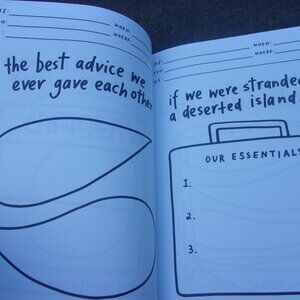 WHEN:
WHERE:
the best advice we
ever gave each other
WHEN:
WHERE:
if we were stranded
a deserted island
OUR ESSENTIALS
1.
2.
3.